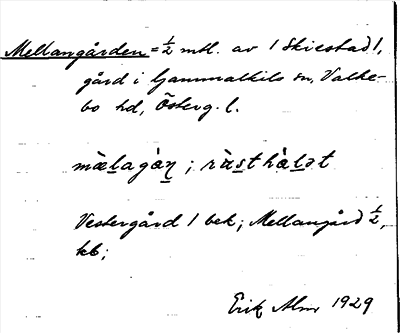 Mellangården = 1/2 mtl. av 1 Skiestad 1,
gård i Gammalkils sn, Valke-
bo hd, Österg. l.
mæ̀lagàn ; rùsthàlət
Vestergård 1 bek; Mellangård 1/2,
kb;
Erik Alm 1929